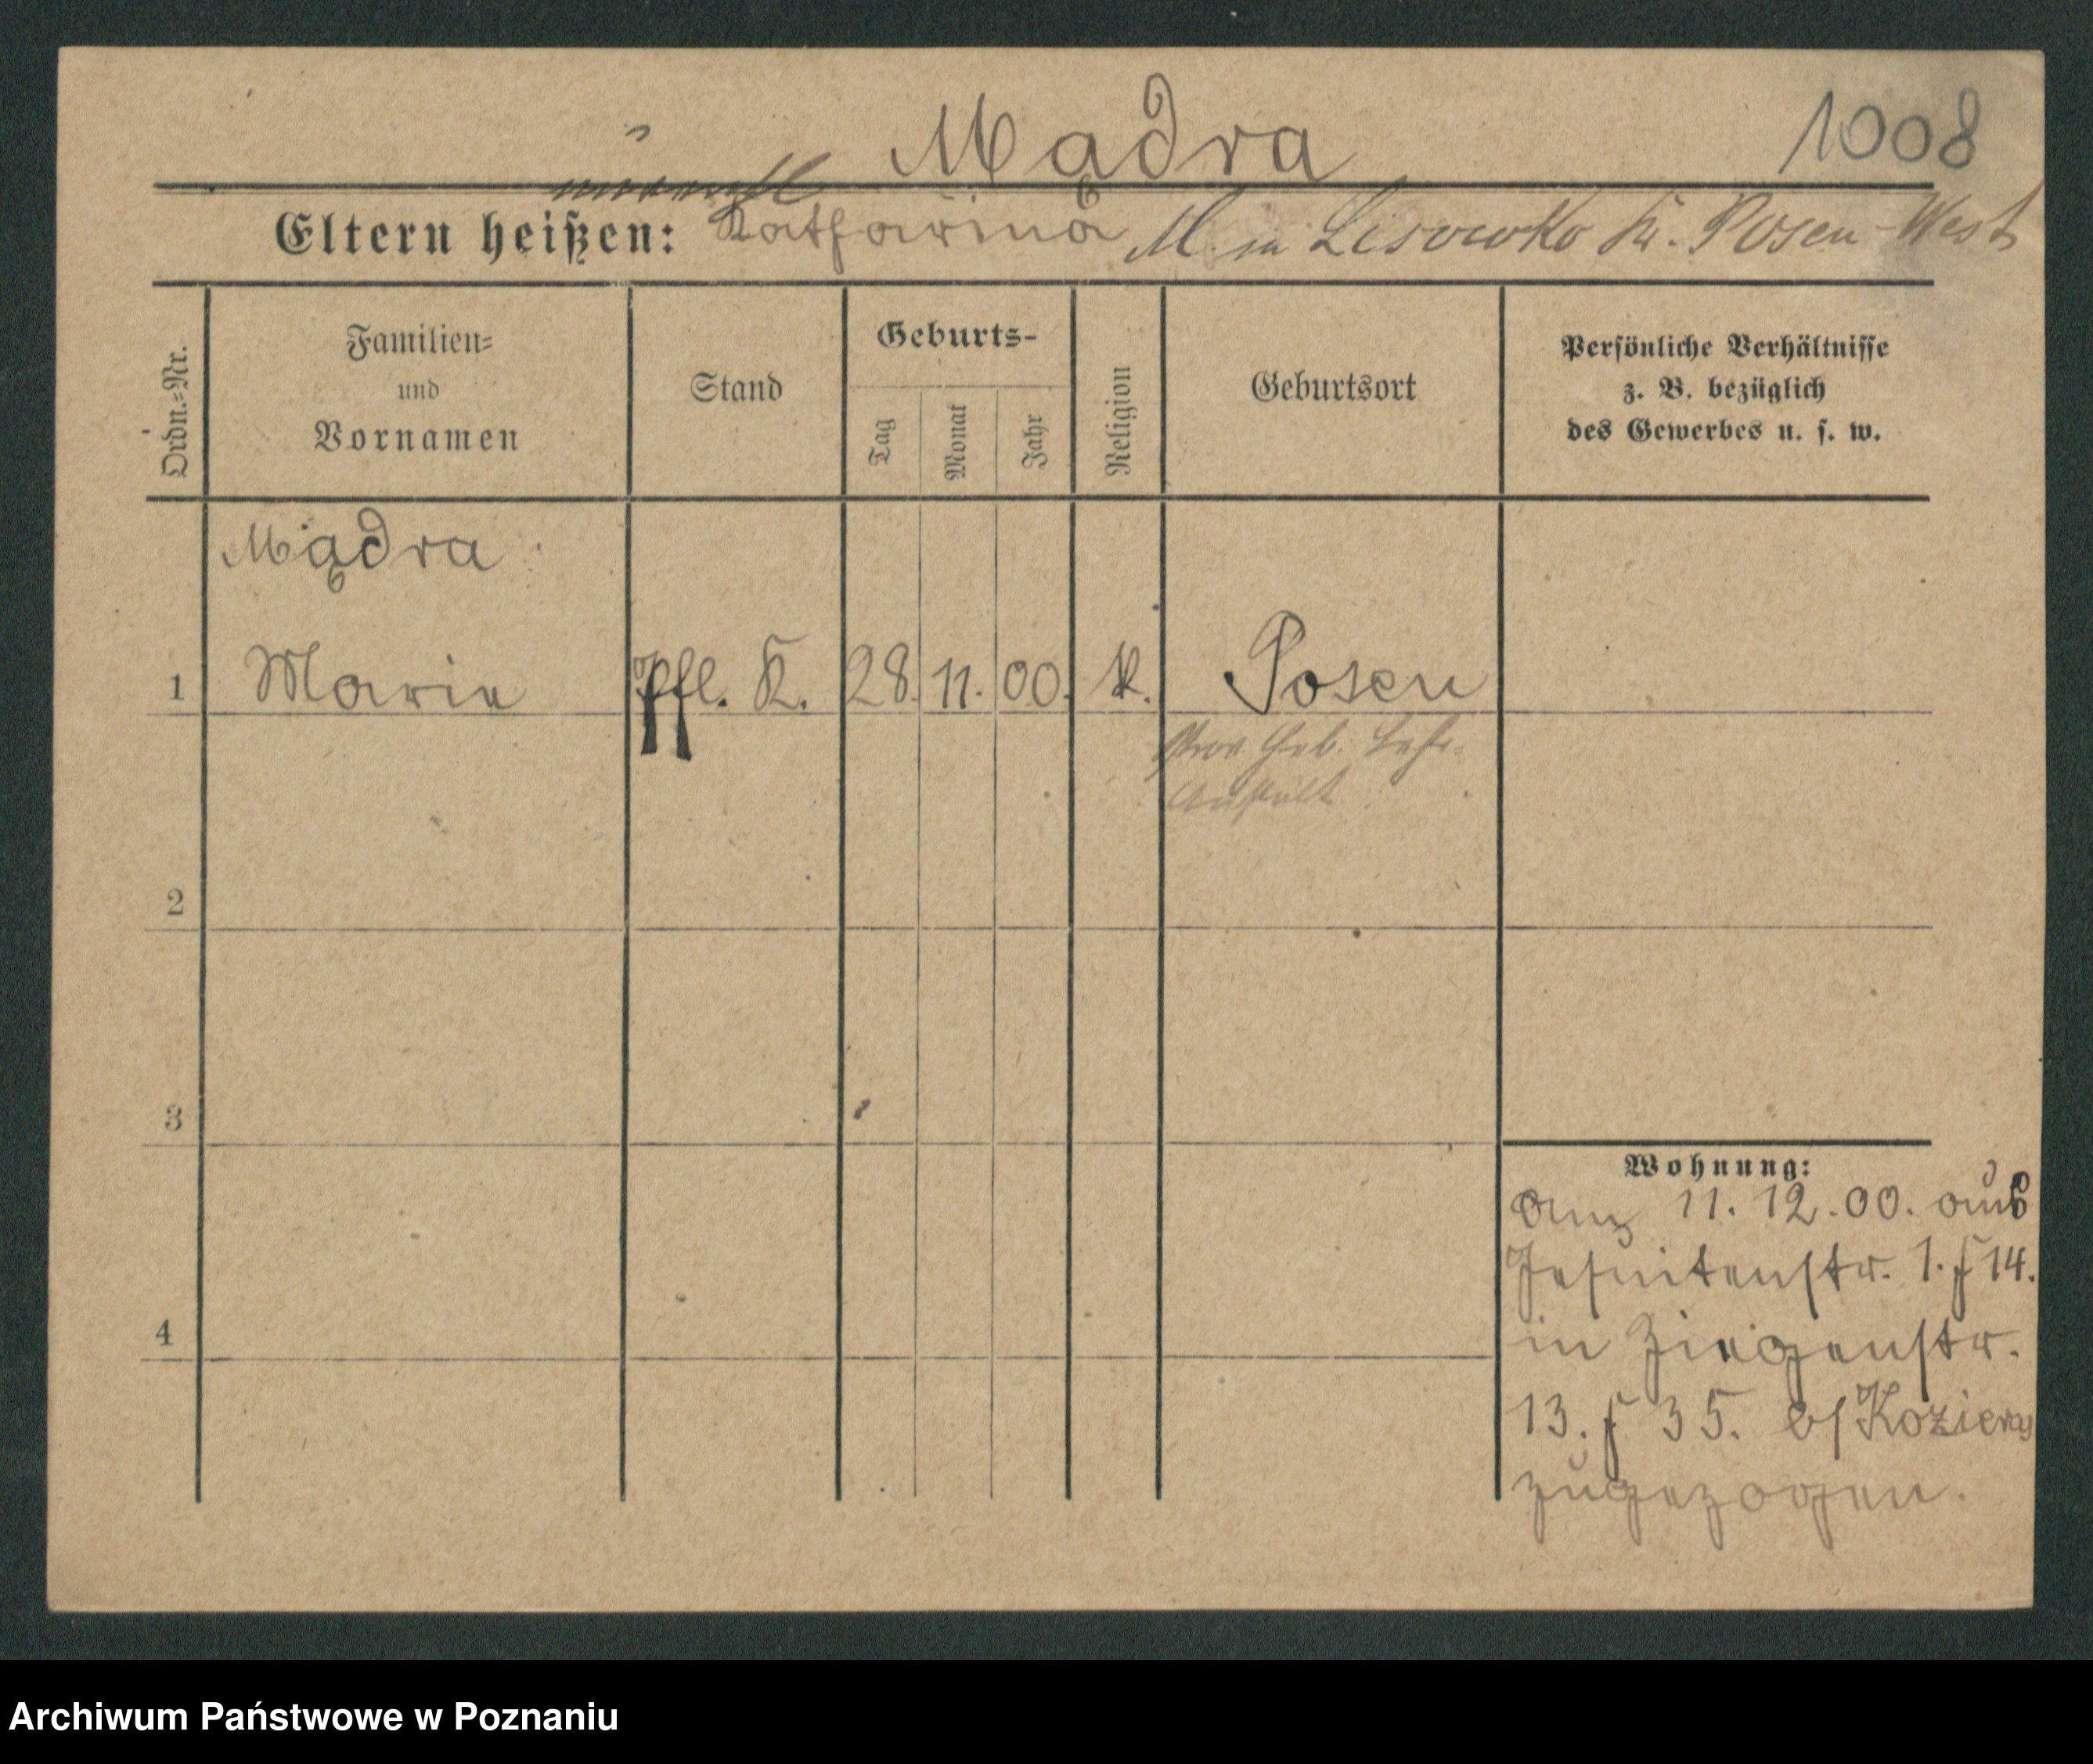 Mądra
1008
unverehl
Eltern heißen: Katharina M. in Lisowko Kr. Posen-West
Ordn.-Nr.
Familien=
und
Vornamen
Stand
Geburts-
Tag
Monat
Jahr
Religion
Geburtsort
Persönliche Verhältnisse
z. B. bezüglich
des Gewerbes u. s. w.
Mądra
1 Marie Pfl. K. 28. 11. 00. k. Posen
Prov. Heb. Lehr-
Anstalt
2
3
4
Wohnung:
am 11. 12. 00. aus
Jesuitenstr. 1. f 14.
in Ziegenstr.
13. f 35. b/
zugezogen.
Archiwum Państwowe w Poznaniu